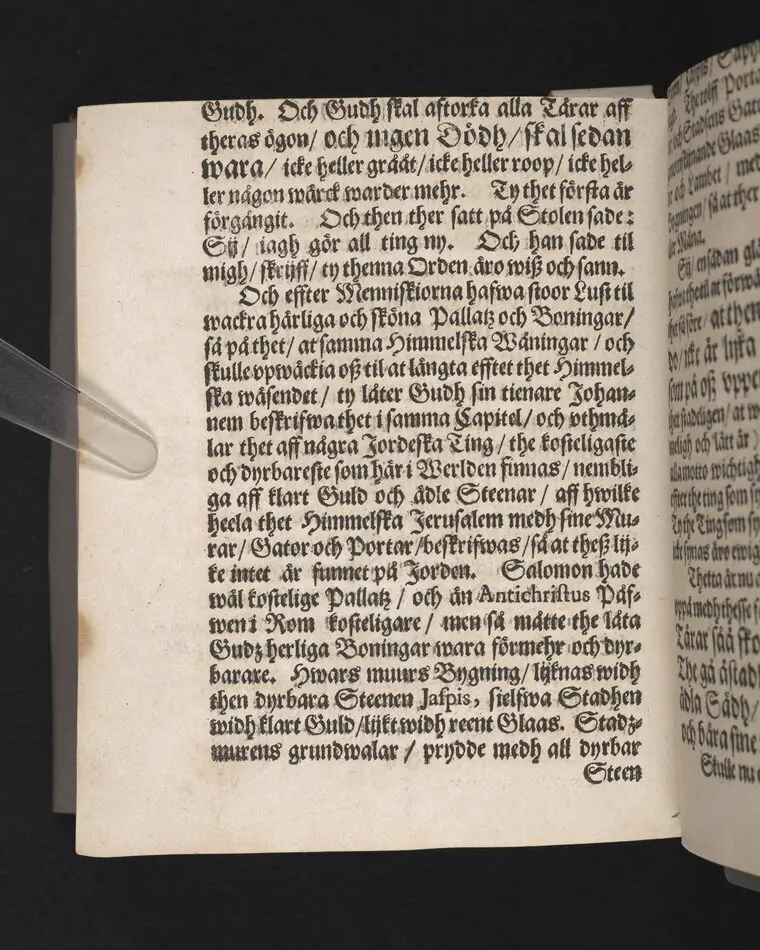 Gudh. Och Gudh skal aftorka alla Tårar aff
theras ögon/ och ingen Dödh/ skal sedan
wara/ icke heller gråât/ icke heller roop/ icke hel-
ler någon wärck warder mehr. Ty thet första är
förgångit. Och then ther satt på Stolen sade:
Sij/ iagh gör all ting ny. Och han sade til
migh/ skrijff/ ty thenna Orden äro wiß och sann.
Och effter Menniskiorna hafwa stoor Lust til
wackra härliga och sköna Pallatz och Boningar/
så på thet/ at samma Himmelska Wåningar / och
skulle vpwäckia oß til at långta efftet thet Himmel-
ska wäsendet / ty låter Gudh sin tienare Johan-
nem beskrifwa thet i samma Capitel/ och vthmå-
lar thet aff några Jordeska Ting / the kosteligaste
och dyrbareste som här i Werlden finnas/ nembli-
ga aff klart Guld och ädle Steenar / aff hwilke
heela thet Himmelska Jerusalem medh sine Mu-
rar/ Gator och Portar/beskrifwas/så at theß lij-
ke intet är funnet på Jorden. Salomon hade
wäl kostelige Pallatz / och än Antichristus Påf-
wen i Rom kosteligare / men så måtte the låta
Gudz herliga Boningar wara förmehr och dyr-
barare. Hwars muurs Bygning/ lijknas widh
then dyrbara Steenen Jaspis, sielfwa Stadhen
widh klart Guld/lijkt widh reent Glaas. Stadz-
murens grundwalar / prydde medh all dyrbar
Steen